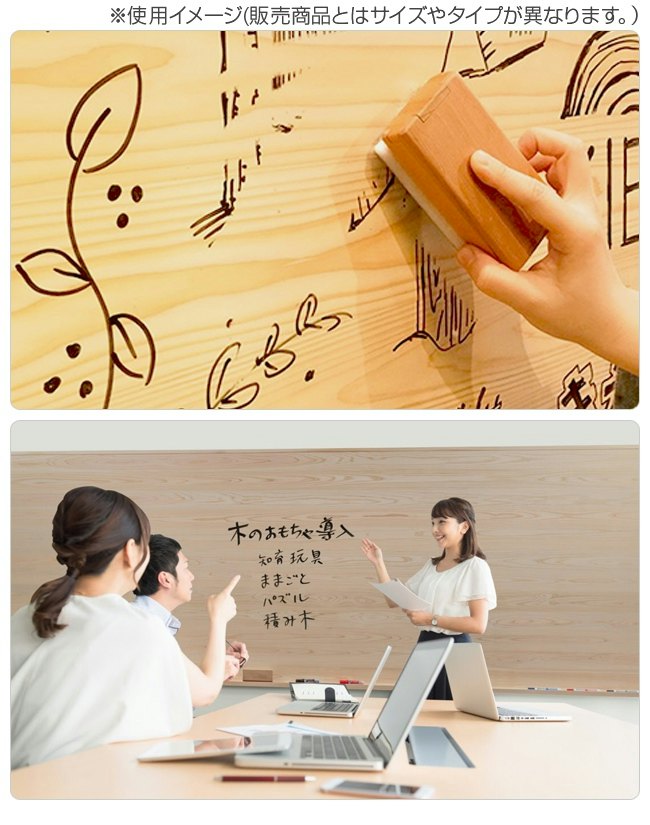 ※使用イメージ(販売商品とはサイズやタイプが異なります。)
木のおもちゃ導入
知育玩具
ままごと
パズル
積み木